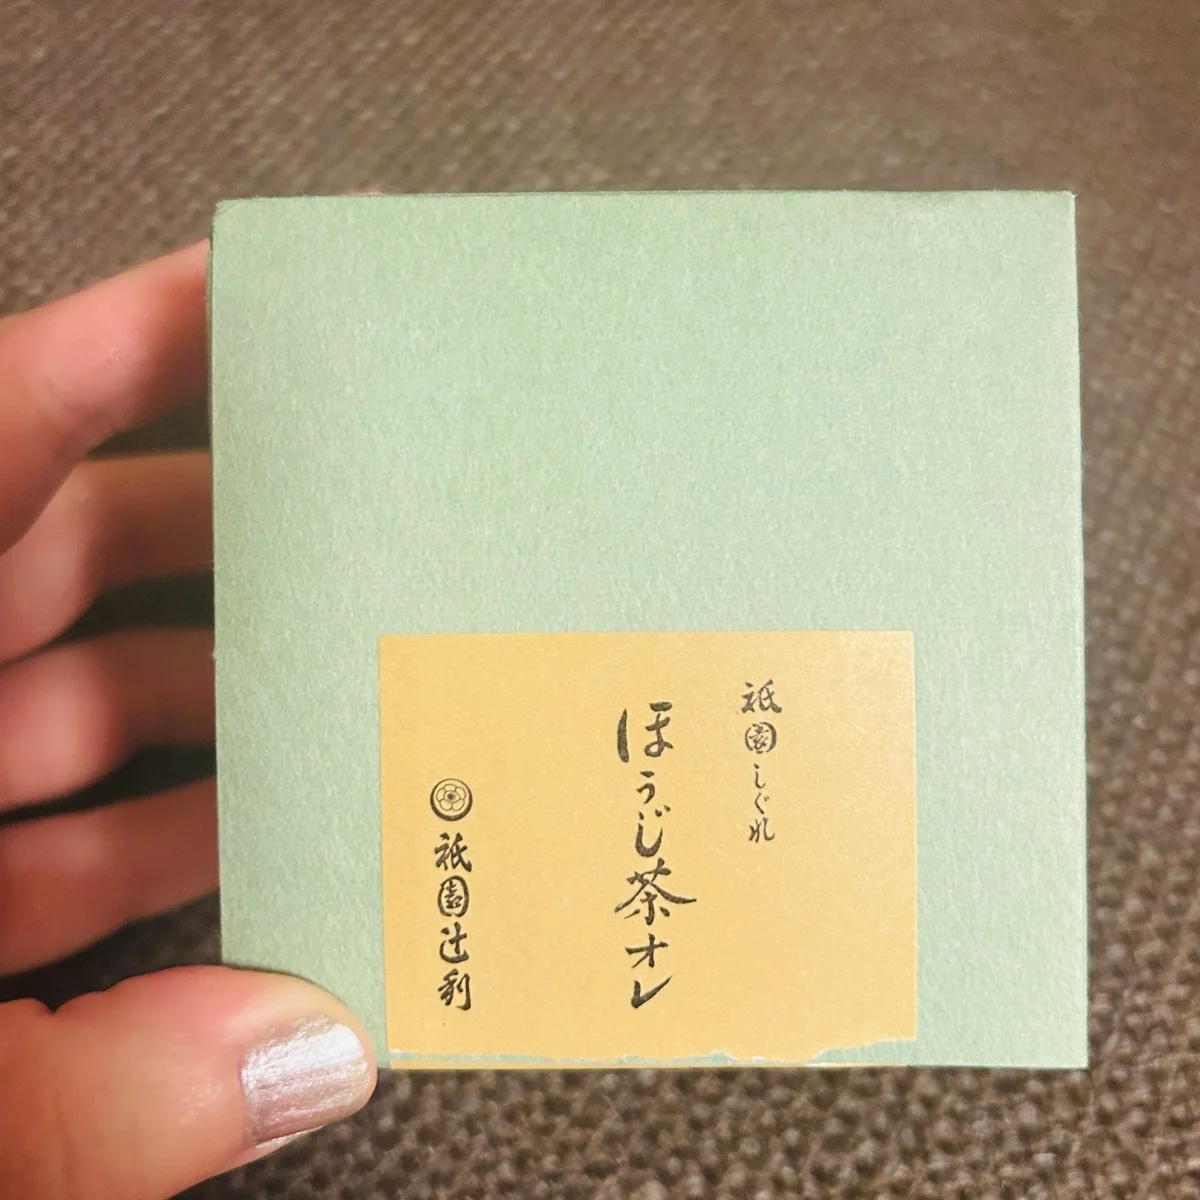 祇園しぐれ
ほうじ茶オレ
祇園辻利